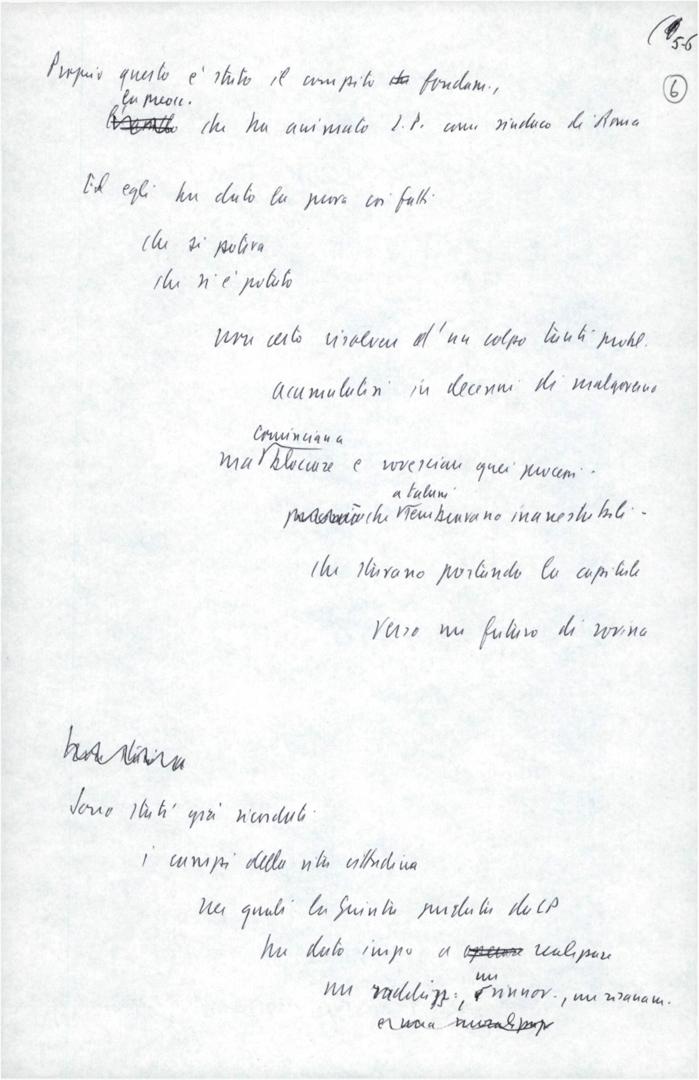 5-6
6
Proprio questo è stato il compito fondam.,
la preocc.
che ha animato L.P. come sindaco di Roma
Ed egli ha dato la prova coi fatti
che si poteva
che si è potuto
non certo risolvere d'un colpo tanti probl.
acumulatisi in decenni di malgoverno
cominciare a
ma bloccare e rovesciare quei processi -
a taluni
che sembravano inarrestabili -
che stavano portando la capitale
verso un futuro di rovina
Sono stati già ricordati
i campi della vita cittadina
nei quali la Giunta guidata da LP
ha dato impo a realizzare
un
un raddrizz., rinnov., un risanam.